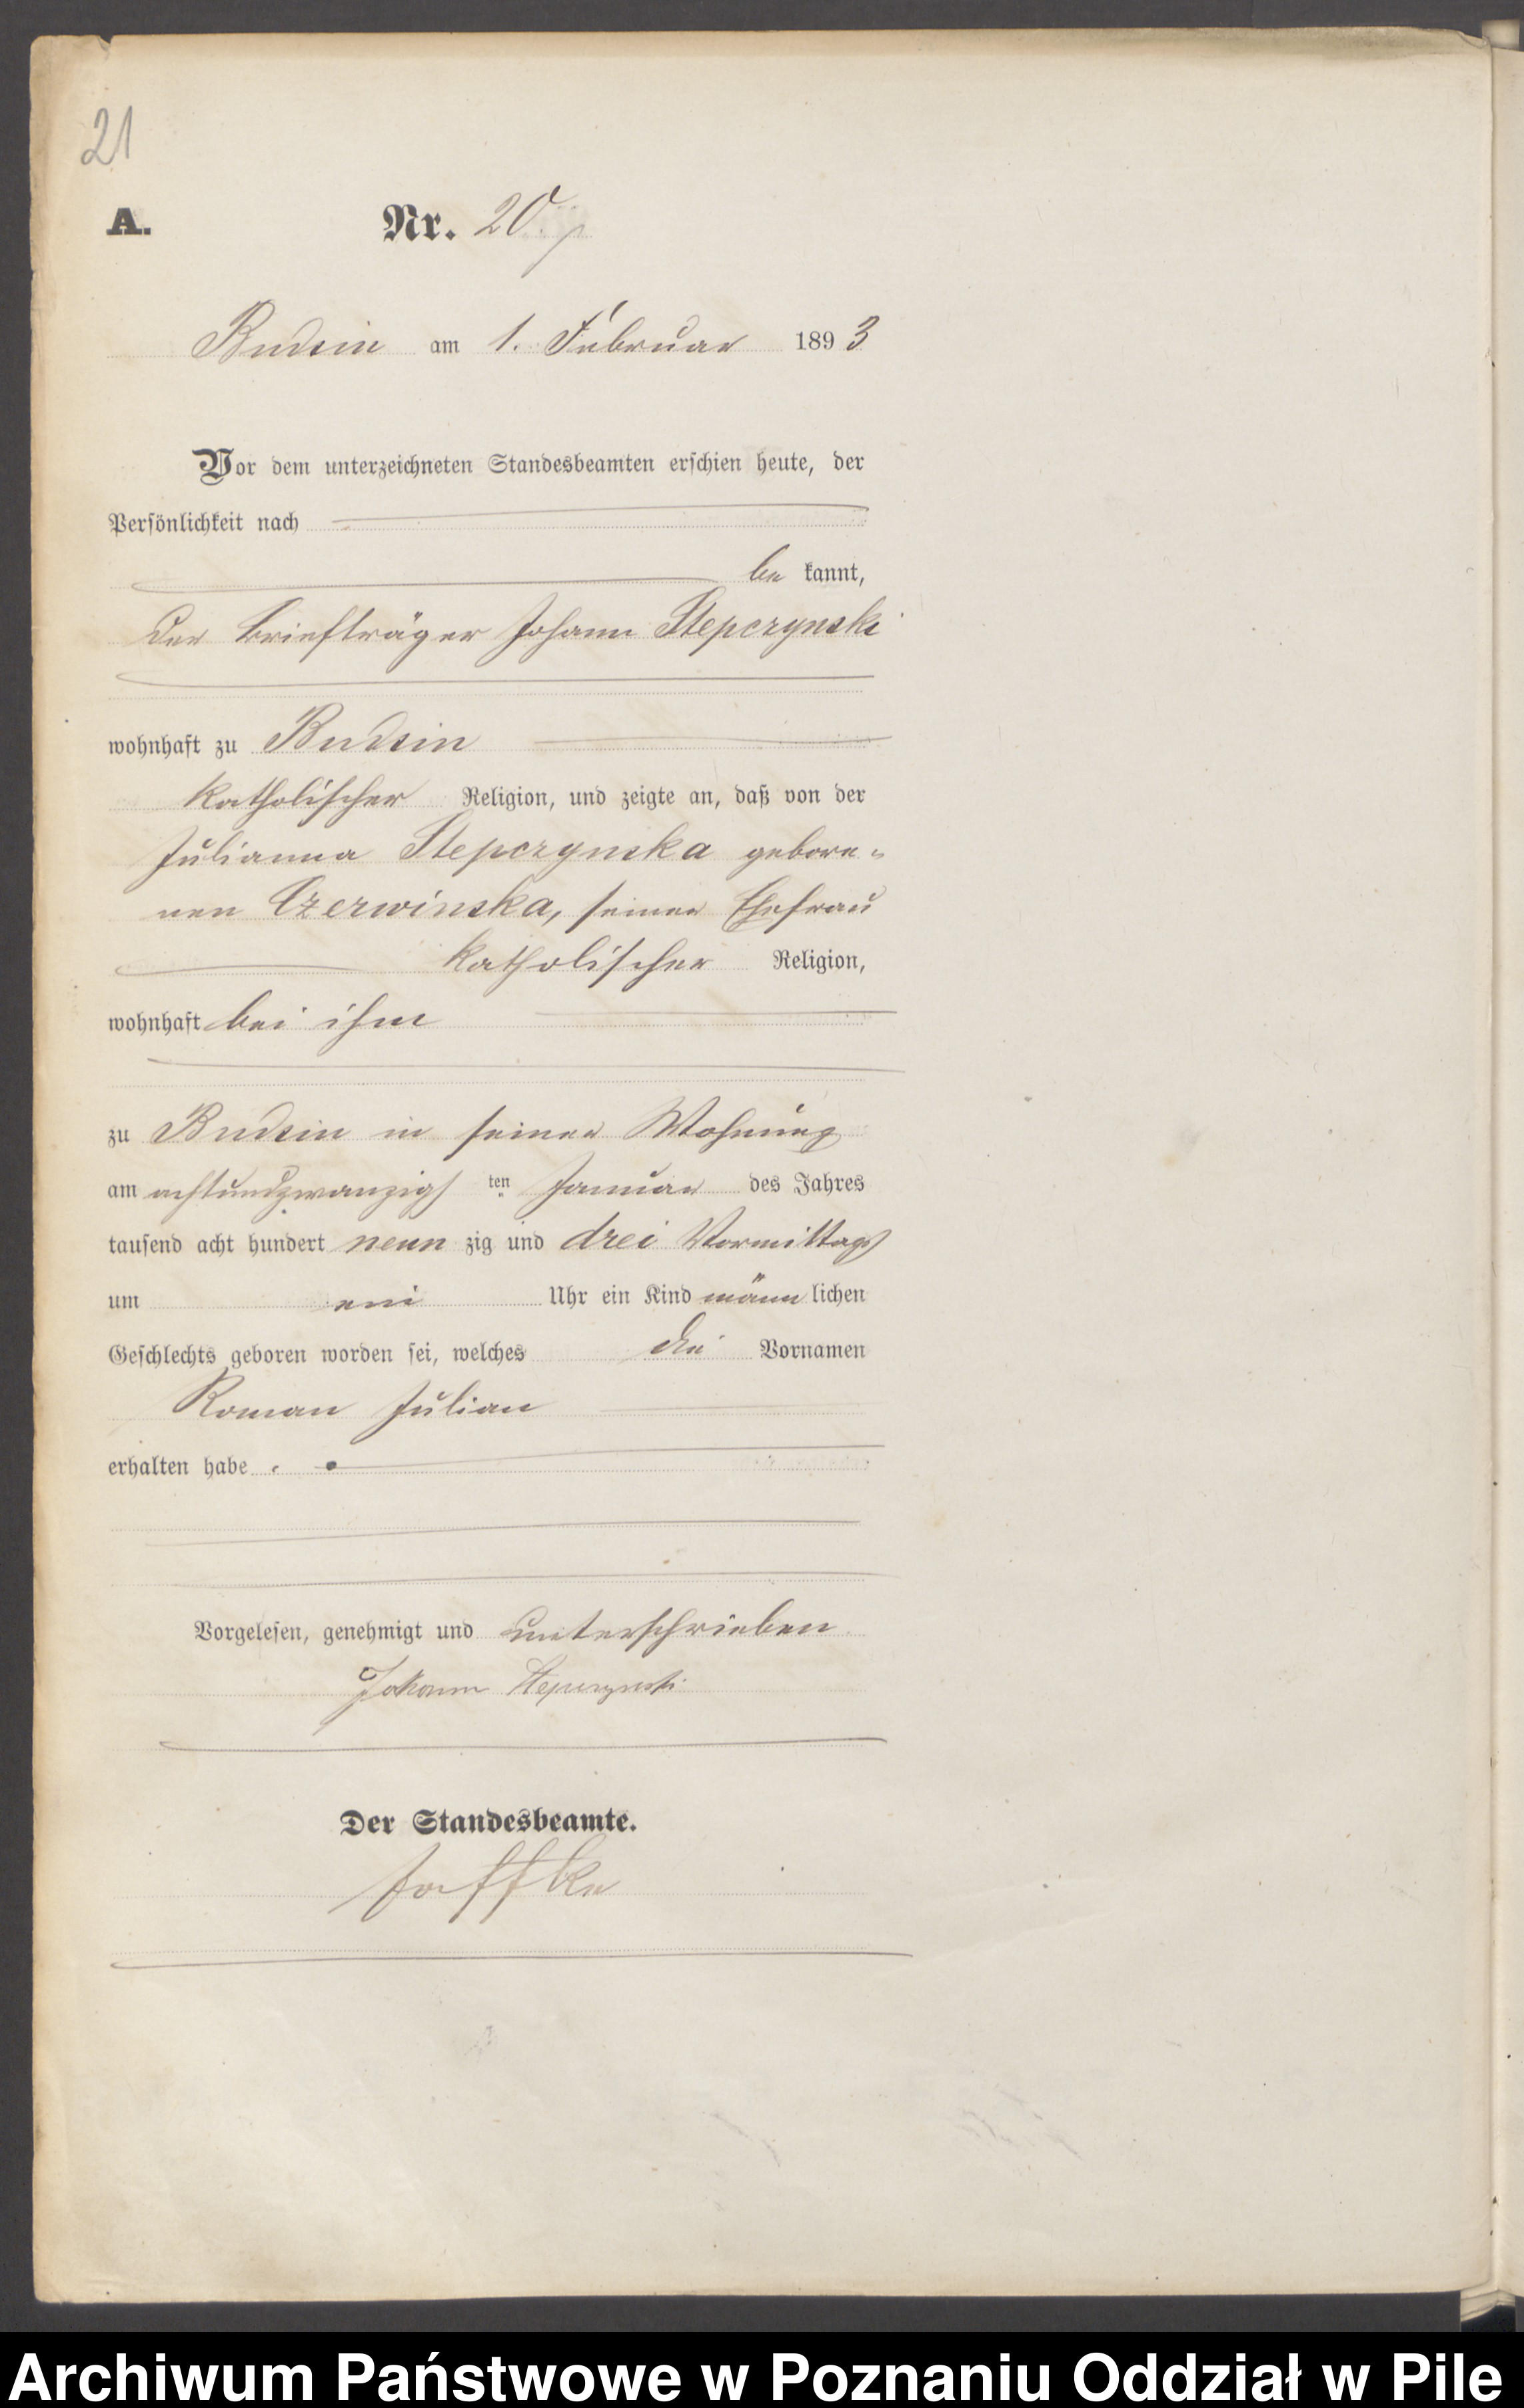 21
A. Nr. 20.
Budsin am 1. Februar 1893
Vor dem unterzeichneten Standesbeamten erschien heute, der
Persönlichkeit nach
be kannt,
der Briefträger Johann Stepczynski
wohnhaft zu Budsin
katholischer Religion, und zeigte an, daß von der
Julianna Stepczynska gebore-
nen Czerwinska, seiner Ehefrau
katholischer Religion,
wohnhaft bei ihm
zu Budsin in seiner Wohnung
am achtundzwanzigs ten Januar des Jahres
tausend acht hundert neun zig und drei Vormittags
um ein Uhr ein Kind männ lichen
Geschlechts geboren worden sei, welches die Vornamen
Roman Julian
erhalten habe.
Vorgelesen, genehmigt und unterschrieben
Johann Stepczynski
Der Standesbeamte.
Jaffke
Archiwum Państwowe w Poznaniu Oddział w Pile